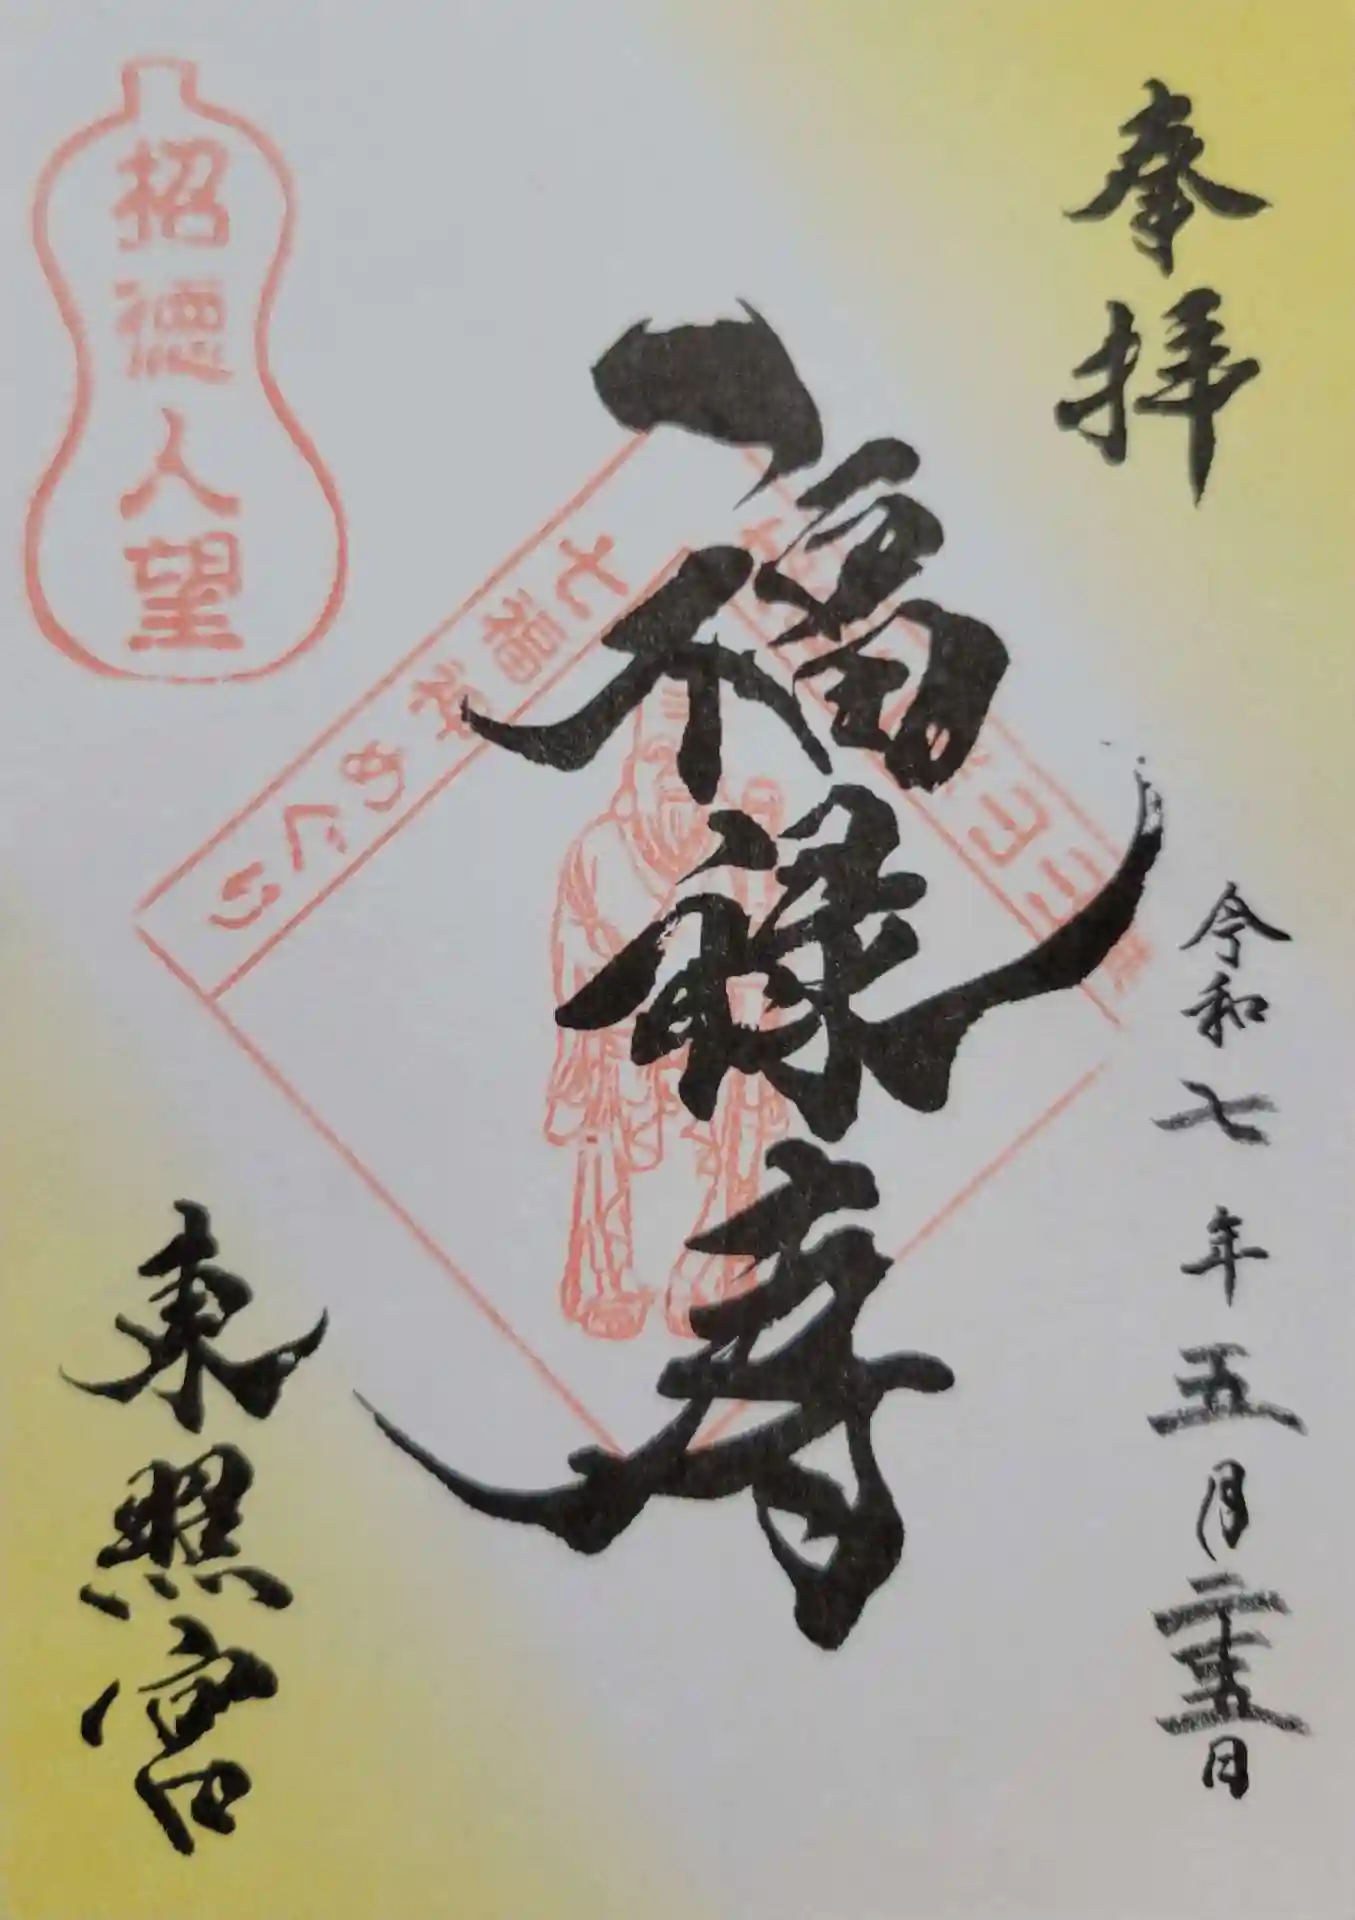 奉拝
令和七年五月二十五日
福禄寿
七福神めぐり
招徳人望
東照宮